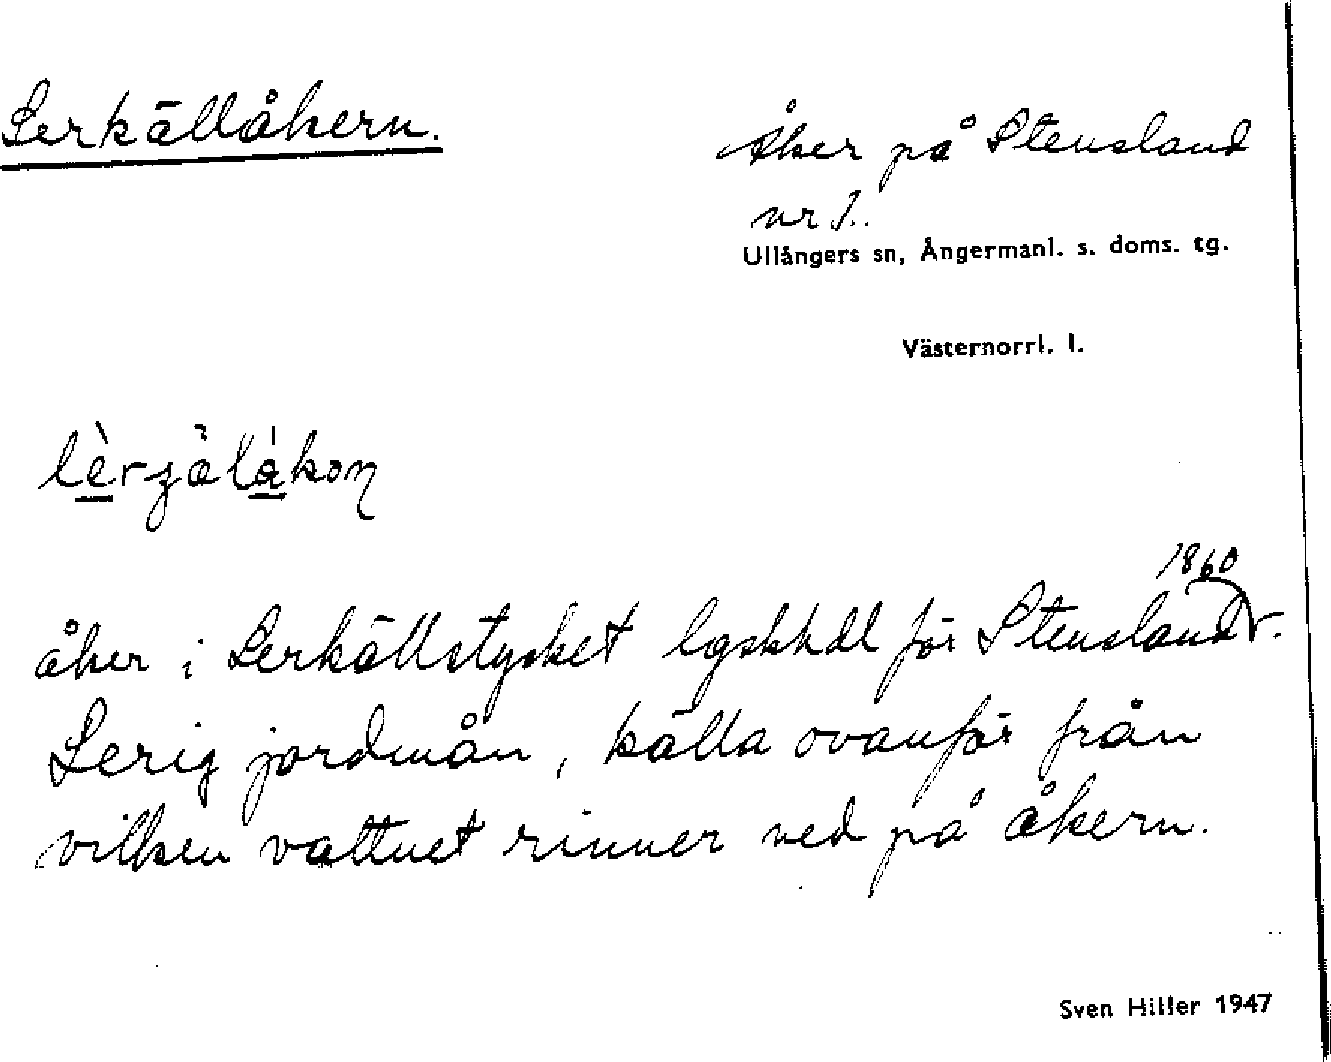 Lerkällåkern.
Åker på Stensland
nr 1.
Ullångers sn, Ångermanl. s. doms. tg.
Västernorrl. l.
åker i Lerkällstycket lgskhdl för Stensland 1860.
Lerig jordmån, källa ovanför från
vilken vattnet rinner ned på åkern.
Sven Hiller 1947